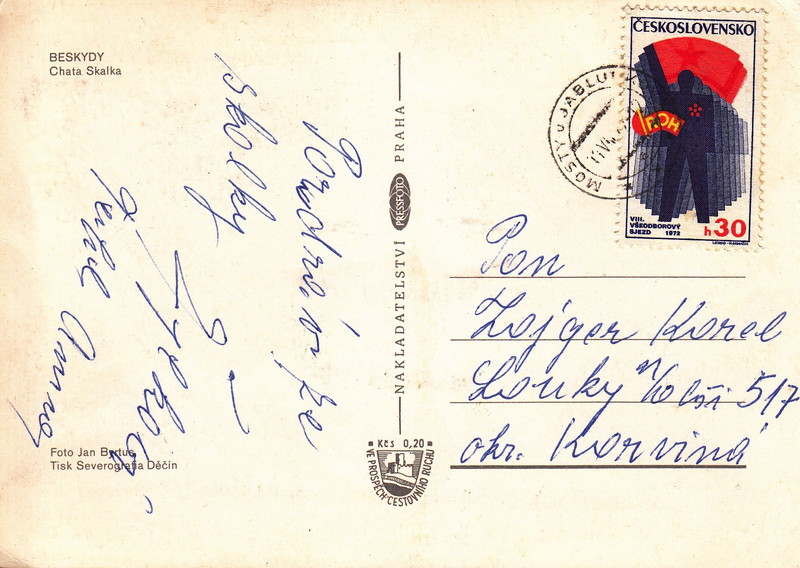 BESKYDY
Chata Skalka
Pozdrav ze
Skalky
Foto Jan Byrtus
Tisk Severografia Děčín
NAKLADATELSTVÍ PRESSFOTO PRAHA
Kčs 0,20
VE PROSPĚCH CESTOVNÍHO RUCHU
ČESKOSLOVENSKO
ROH
VIII.
VŠEODBOROVÝ
SJEZD 1972
h 30
MOSTY U JABLU
Pan
Zojger Karel
Louky n/Olší 517
okr. Karviná